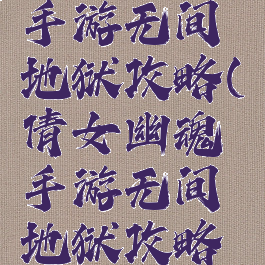 手游无间
地狱攻略(
倩女幽魂
手游无间
地狱攻略